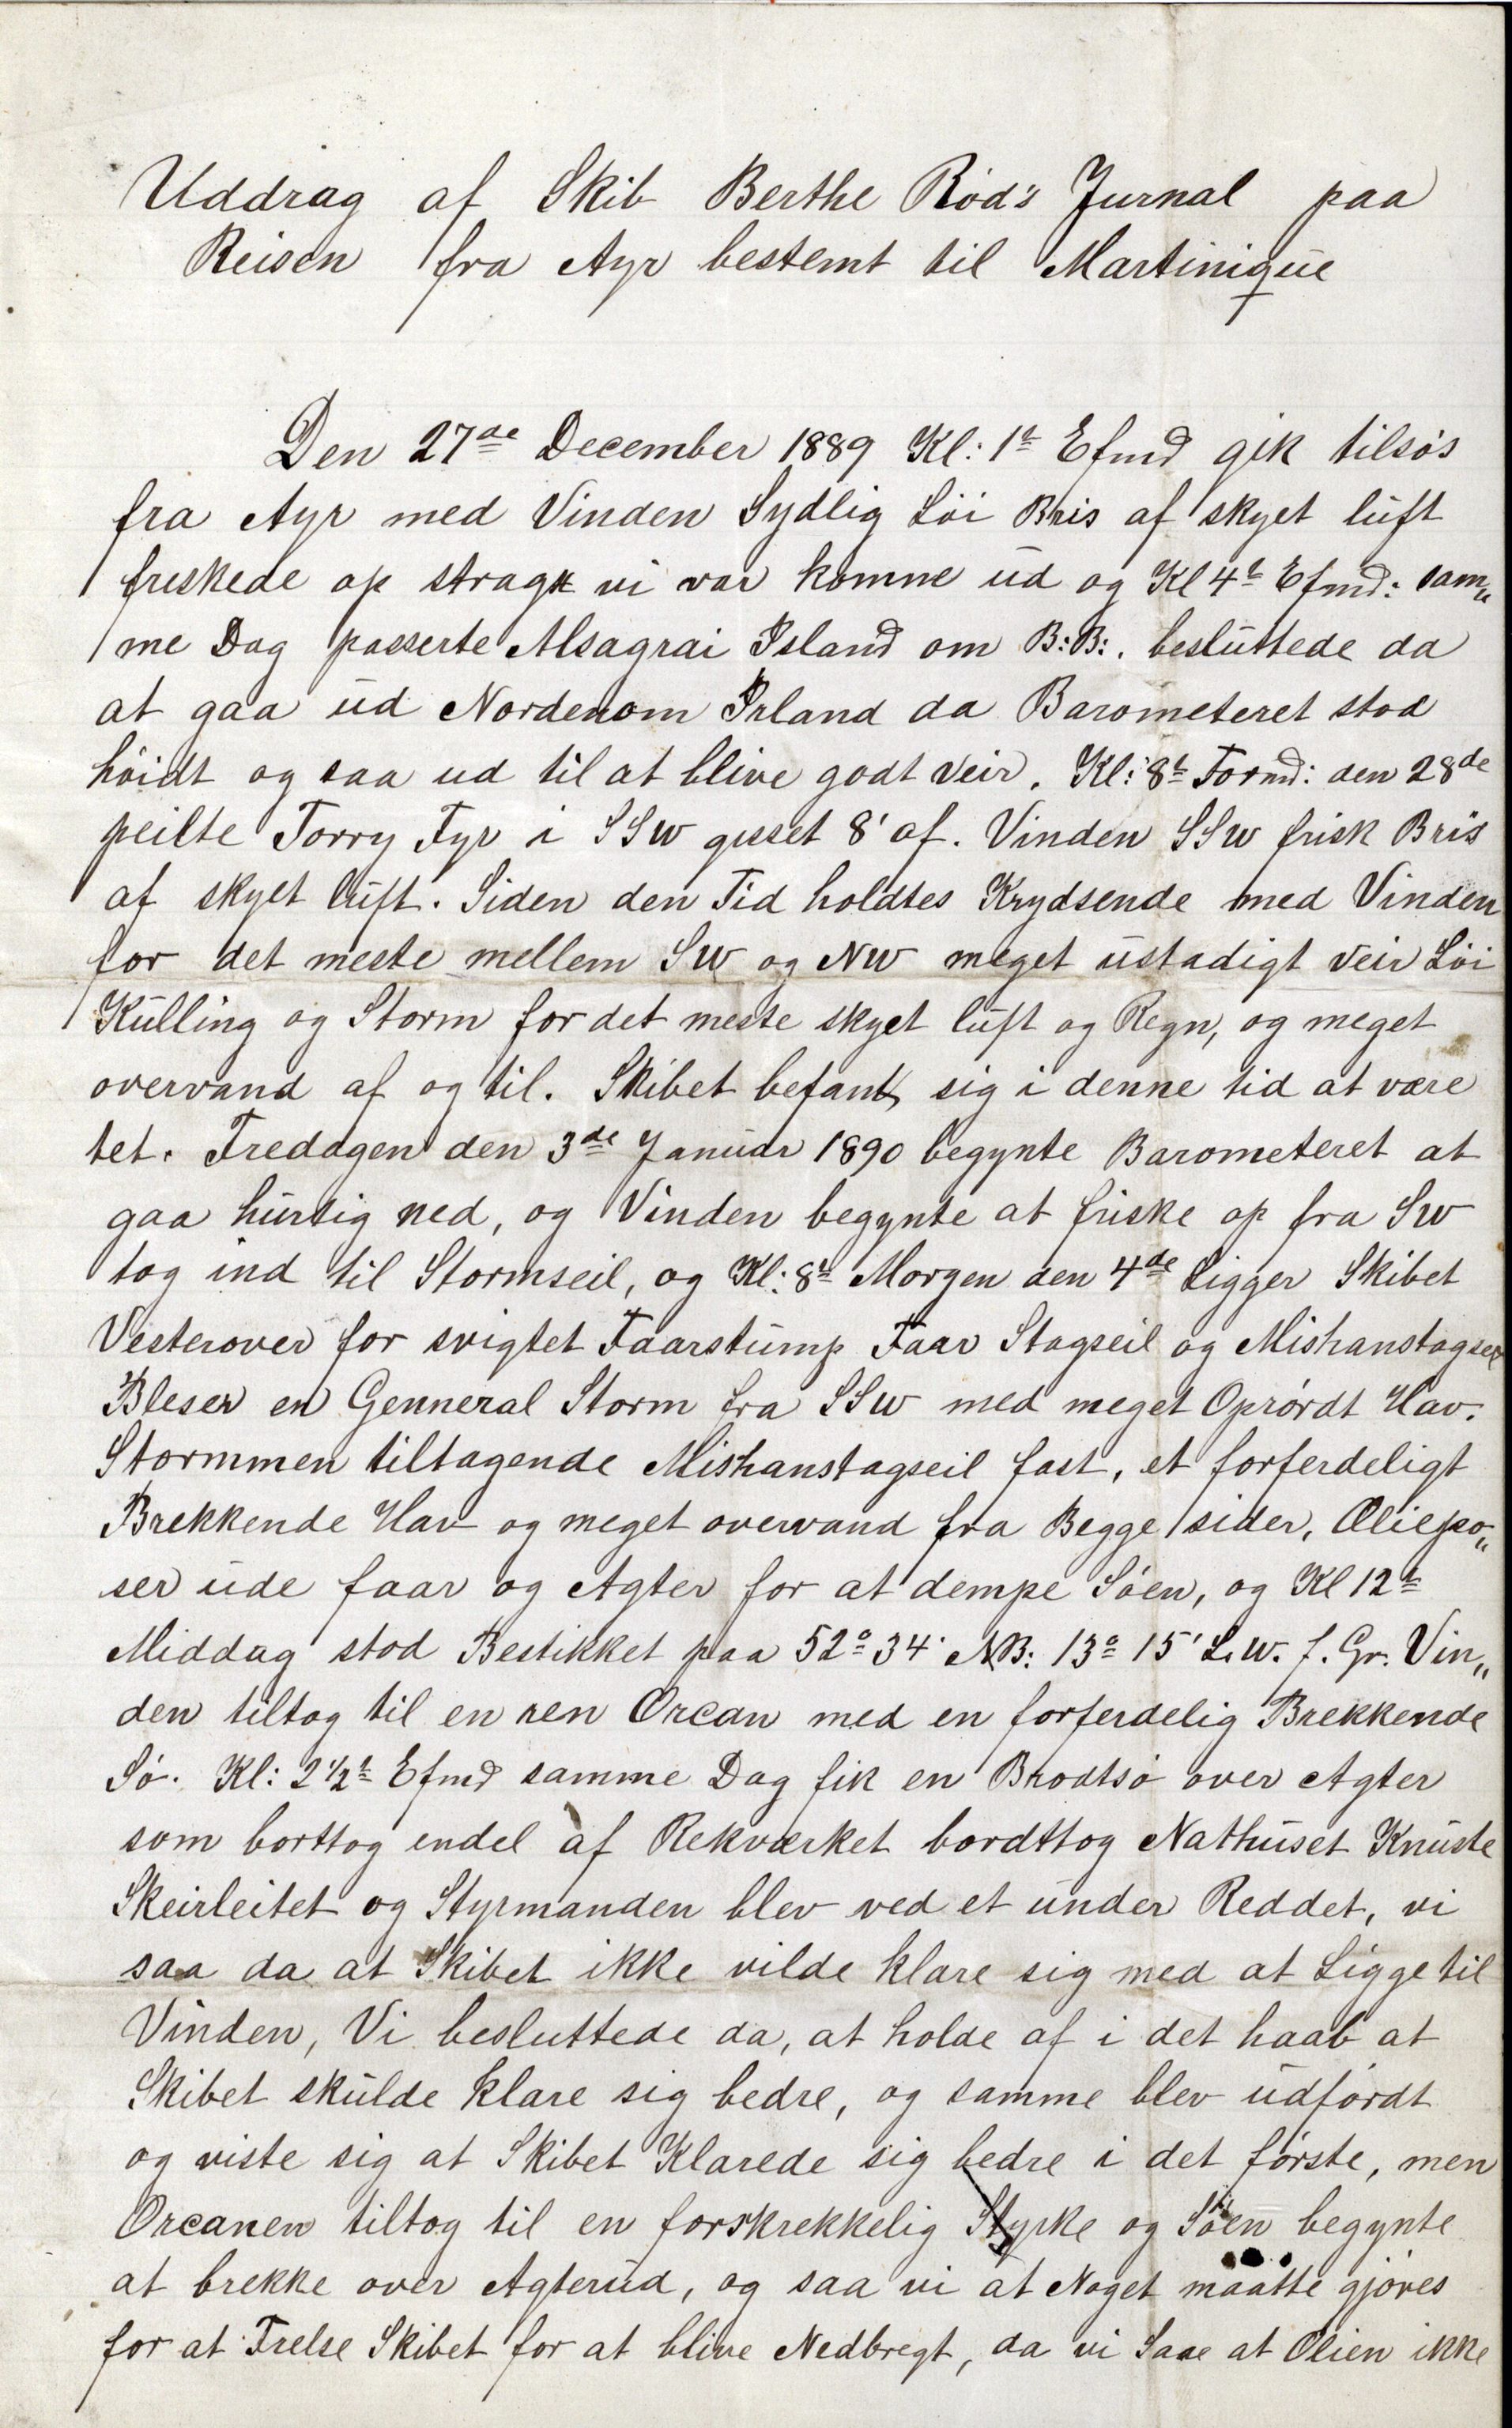 Uddrag af Skib Berthe Rød's Jurnal paa
Reisen fra Ayr bestemt til Martinique
Den 27de December 1889 Kl: 1t Efmd gik tilsös
fra Ayr med Vinden Sydlig Löi Bris af skyet luft
friskede op stragk vi var komne ud og Kl 4t Efmd: sam„
me Dag passerte Alsagrai Island om B:B:. besluttede da
at gaa ud Nordenom Irland da Barometeret stod
höidt og saa ud til at blive godt veir. Kl: 8t Formd: den 28de
peilte Torry Fyr i SSW gisset 8' af. Vinden SSW frisk Bris
af skyet luft. Siden den Tid holdtes Krydsende med Vinden
for det meste mellem SW og NW meget ustadigt veir Löi
Kulling og Storm for det meste skyet luft og Regn, og meget
overvand af og til. Skibet befant sig i denne tid at være
tet. Fredagen den 3de Januar 1890 begynte Barometeret at
gaa hurtig ned, og Vinden begynte at friske op fra SW
tog ind til Stormseil, og Kl: 8t Morgen den 4de Ligger Skibet
Vesterover for svigtet Faarstump Faar Stagseil og Mishanstagseil
Bleser en Genneral Storm fra SSW med meget Oprördt Hav.
Stormmen tiltagende Mishanstagseil fast, et forferdeligt
Brekkende Hav og meget overvand fra Begge sider, Oliepo„
ser ude faar og Agter for at dempe Söen, og Kl 12t
Middag stod Bestikket paa 52° 34' NB: 13° 15' L.W. f. Gr. Vin„
den tiltog til en ren Orcan med en forferdelig Brekkende
Sö. Kl: 2 1/2t Efmd samme Dag fik en Brodtsö over Agter
som borttog endel af Rekværket bordttog Nathuset Knuste
Skeirleitet og Styrmanden blev ved et under Reddet, vi
saa da at Skibet ikke vilde klare sig med at Ligge til
Vinden, Vi besluttede da, at holde af i det haab at
Skibet skulde klare sig bedre, og samme blev udfördt
og viste sig at Skibet Klarede sig bedre i det förste, men
Orcanen tiltog til en forskrekkelig Styrke og Söen begynte
at brekke over Agterud, og saa vi at Noget maatte gjöres
for at Frelse Skibet for at blive Nedbregt, da vi Saae at Olien ikke